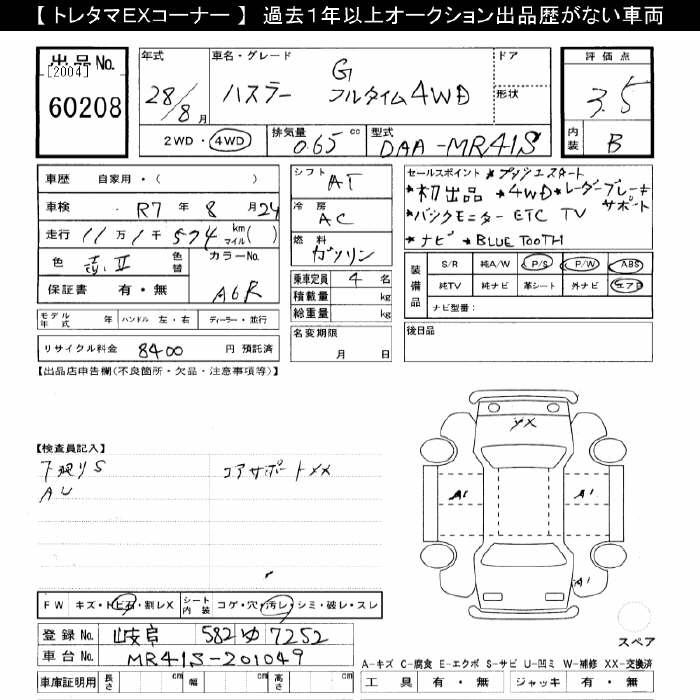 【 トレタマEXコーナー 】 過去１年以上オークション出品歴がない車両
出品No.
[2004]
60208
年式 28/8月
車名・グレード
ハスラー G
フルタイム4WD
ドア
形状
2WD・4WD
排気量 0.65 cc
型式 DAA-MR41S
評価点
3.5
内装 B
車歴 自家用・( )
車検 R7年 8月24
走行 11万1千574 km マイル( )
色 色替
カラーNo. A6R
保証書 有・無
モデル年式 年 ハンドル 左・右 ディーラー・並行
リサイクル料金 8400 円 預託済
シフト AT
冷房 AC
燃料 ガソリン
乗車定員 4 名
積載量 kg
総重量 kg
名変期限
月 日
セールスポイント *プッシュスタート
*初出品 *4WD *レーダーブレーキサポート
*バックモニター ETC TV
*ナビ *BLUETOOTH
装備品
S/R 純A/W P/S P/W ABS
純TV 純ナビ 革シート 外ナビ エアB
ナビ型番：
後日品
【出品店申告欄(不良箇所・欠品・注意事項等)】
【検査員記入】
下廻りS コアサポートXX
AU
YX
A1 A1
A1
スペア
FW キズ・トビ石・割レX シート内装 コゲ・穴・汚レ・シミ・破レ・スレ
登録No. 岐阜 582 ゆ 7252
車台No. MR41S-201049
車庫証明用 長さ cm 幅 cm 高さ cm
A-キズ C-腐食 E-エクボ S-サビ U-凹ミ W-補修 XX-交換済
工具 有・無 ジャッキ 有・無